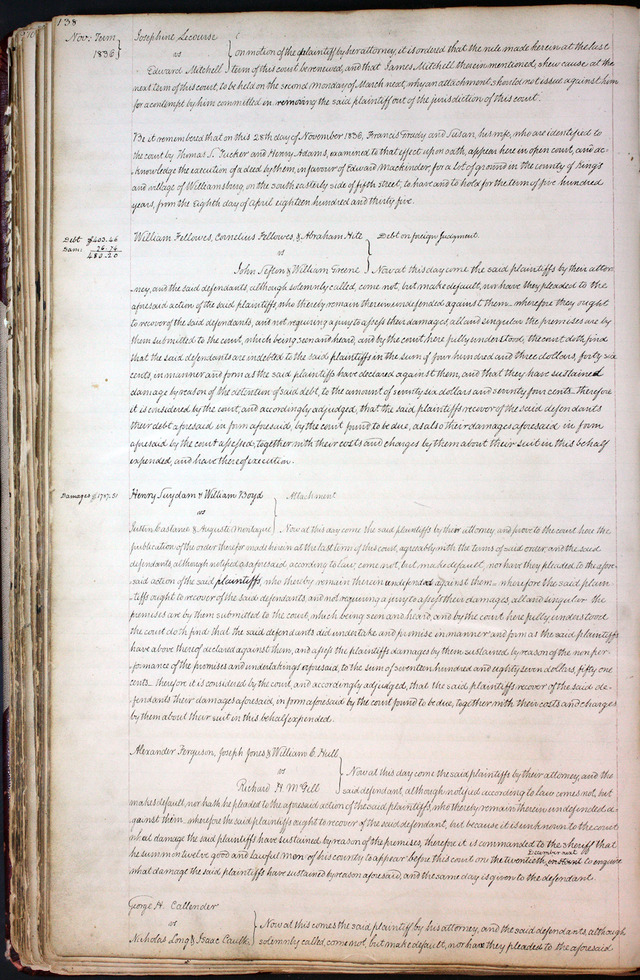 138
Nov: Term
1836
Josephine Lecourse
vs
Edward Mitchell
on motion of the plaintiff by her attorney, it is ordered that the rule made herein at the last
term of this court be renewed, and that James Mitchell therein mentioned, shew cause at the
next term of this court, to be held on the second Monday of March next, why an attachment should not issue against him
for a contempt by him committed in removing the said plaintiff out of the jurisdiction of this court.
Be it remembered that on this 28th day of November 1836, Francis Grady and Susan, his wife, who are identified to
the court by Thomas S. Tucker and Henry Adams, examined to that effect upon oath, appear here in open court, and ac-
knowledge the execution of a deed by them, in favour of Edward Mackinder, for a lot of ground in the county of Kings
and village of Williamsburg, on the south easterly side of fifth street, to have and to hold for the term of five hundred
years, from the Eighth day of April eighteen hundred and thirty five.
Debt $403.46
Dam: 76.74
480.20
William Fellowes, Cornelius Fellowes, & Abraham Hite
vs
John Sefton & William Greene
Debt on foreign Judgment.
Now at this day come the said plaintiffs by their attor-
ney, and the said defendants, although solemnly called, come not, but make default, nor have they pleaded to the
aforesaid action of the said plaintiffs, who thereby remain therein undefended against them. wherefore they ought
to recover of the said defendants, and not requiring a jury to assess their damages, all and singular the premises are by
them submitted to the court, which being seen and heard, and by the court here fully understood, the court doth find
that the said defendants are indebted to the said plaintiffs in the sum of four hundred and three dollars forty six
cents, in manner and form as the said plaintiffs have declared against them, and that they have sustained
damage by reason of the detention of said debt, to the amount of seventy six dollars and seventy four cents. Therefore
it is considered by the court, and accordingly adjudged, that the said plaintiffs recover of the said defendants
their debt aforesaid in form aforesaid, by the court found to be due, as also their damages aforesaid in form
aforesaid by the court assessed, together with their costs and charges by them about their suit in this behalf
expended, and have thereof execution.
Damages $1787.51
Henry Suydam & William Boyd
vs
Justin Caslanie & Auguste Montague
Attachment
Now at this day come the said plaintiffs by their attorney and prove to the court here the
publication of the order therefor made herein at the last term of this court, agreeably with the terms of said order and the said
defendants although notified as aforesaid according to law, come not, but make default, nor have they pleaded to the afore-
said action of the said plaintiffs, who thereby remain therein undefended against them. wherefore the said plain-
tiffs ought to recover of the said defendants, and not requiring a jury to assess their damages, all and singular the
premises are by them submitted to the court, which being seen and heard, and by the court here fully understood
the court doth find that the said defendants did undertake and promise in manner and form as the said plaintiffs
have above thereof declared against them, and assess the plaintiffs damages by them sustained by reason of the non per-
formance of the promises and undertakings aforesaid, to the sum of seventeen hundred and eighty seven dollars, fifty one
cents. Therefore it is considered by the court, and accordingly adjudged, that the said plaintiffs recover of the said de-
fendants their damages aforesaid, in form aforesaid by the court found to be due, together with their costs and charges
by them about their suit in this behalf expended.
Alexander Ferguson, Joseph Jones & William C. Hull
vs
Richard H. McGill
Now at this day come the said plaintiffs by their attorney, and the
said defendant, although notified according to law comes not, but
makes default, nor hath he pleaded to the aforesaid action of the said plaintiffs, who thereby remain therein undefended a-
gainst them. wherefore the said plaintiffs ought to recover of the said defendant, but because it is unknown to the court
what damage the said plaintiffs have sustained by reason of the premises, therefore it is commanded to the sheriff that
he summon twelve good and lawful men of his county to appear before this court on the twentieth December next instant to enquire
what damage the said plaintiffs have sustained by reason aforesaid, and the same day is given to the defendant.
George H. Callender
vs
Nicholas Long & Isaac Caulk.
Now at this comes the said plaintiff by his attorney, and the said defendants, although
solemnly called, come not, but make default, nor have they pleaded to the aforesaid